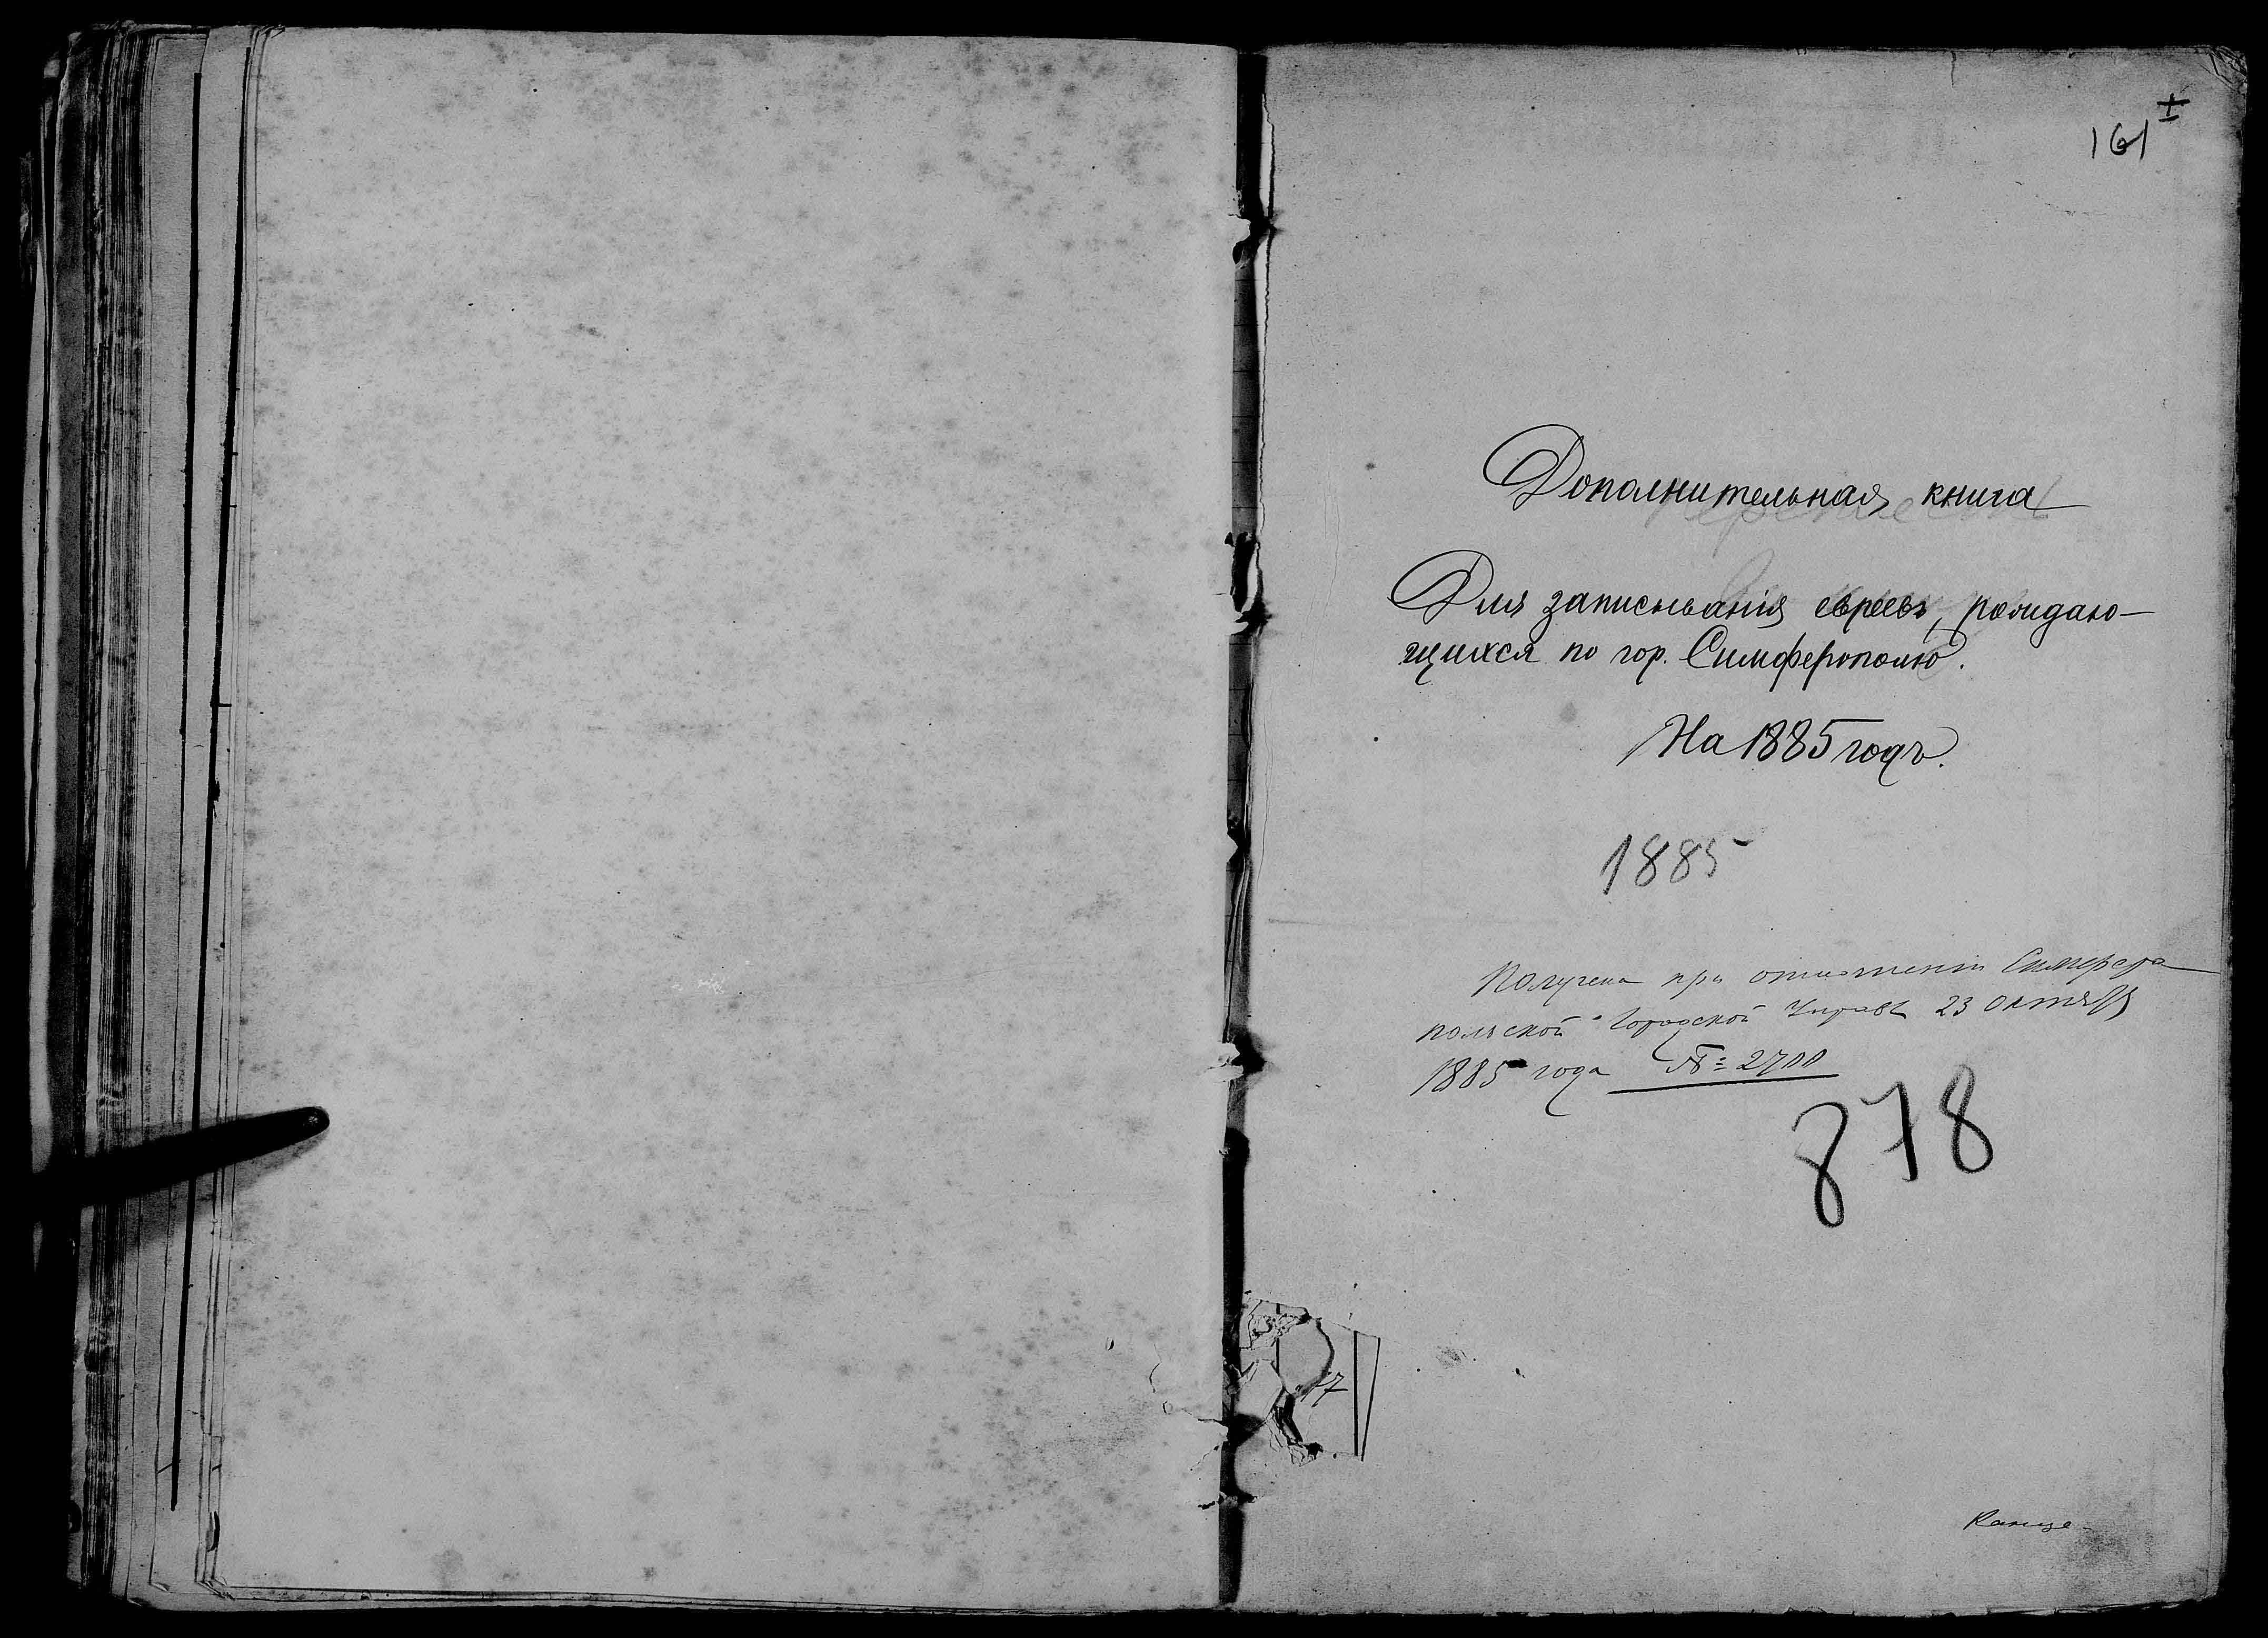 161
Дополнительная книга
Для записыванія евреевъ, рождаю-
щихся по гор. Симферополю.
На 1885 годъ.
1885
Получена при отношеніи Симферо
польской Городской Управы 23 Октября
1885 года № 2700
878
17